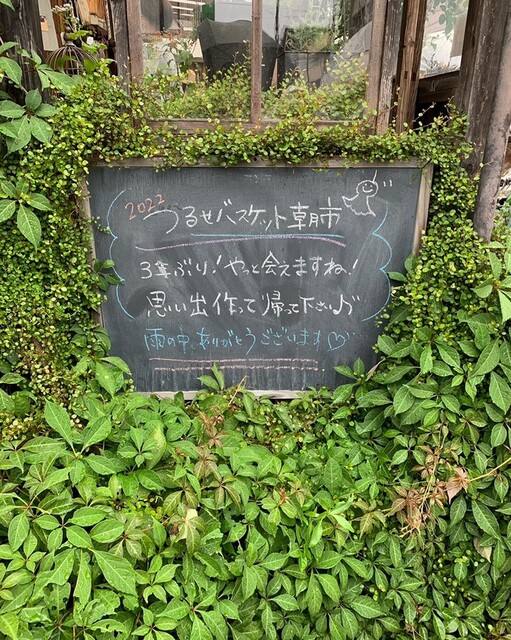 2022 つるせバスケット朝市
3年ぶり！やっと会えますね！
思い出作って帰って下さい♪
雨の中、ありがとうございます♡